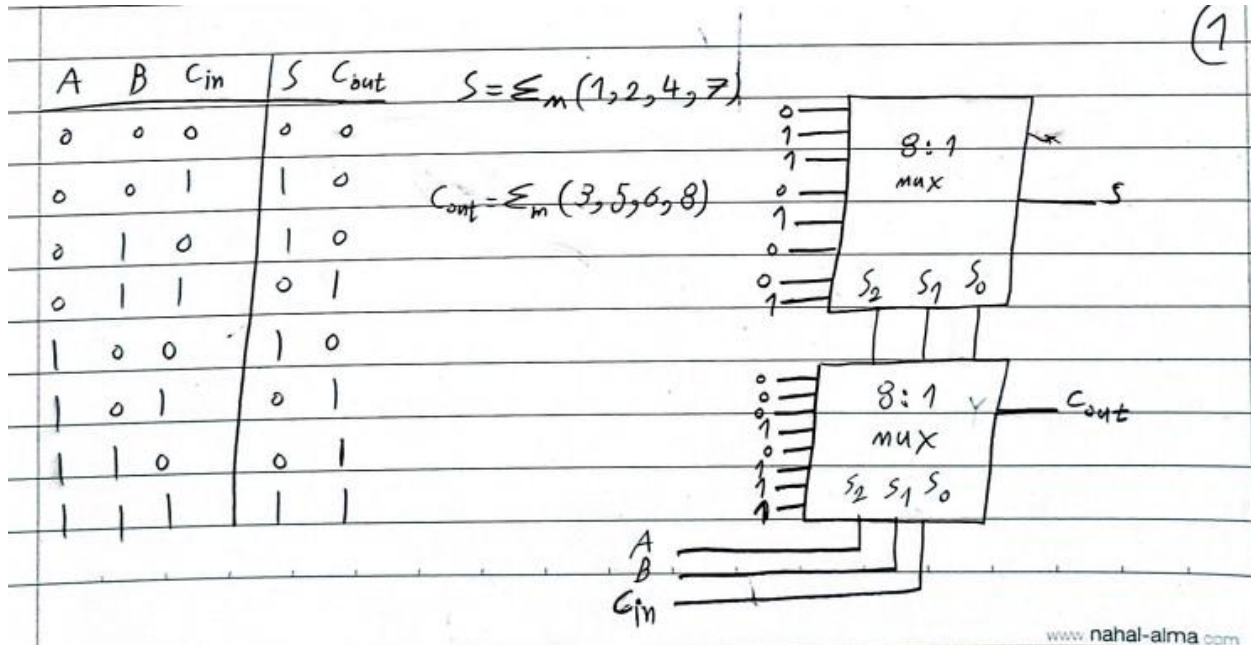 (1
A B Cin S Cout
0 0 0 0 0
0 0 1 1 0
0 1 0 1 0
0 1 1 0 1
1 0 0 1 0
1 0 1 0 1
1 1 0 0 1
1 1 1 1 1
S = Σm (1, 2, 4, 7)
Cout = Σm (3, 5, 6, 8)
0
1
1
0
1
0
0
1
8:1
mux
S
S2 S1 S0
0
0
0
1
0
1
1
1
8:1
mux
Y
Cout
S2 S1 S0
A
B
Cin
www.nahal-alma.com